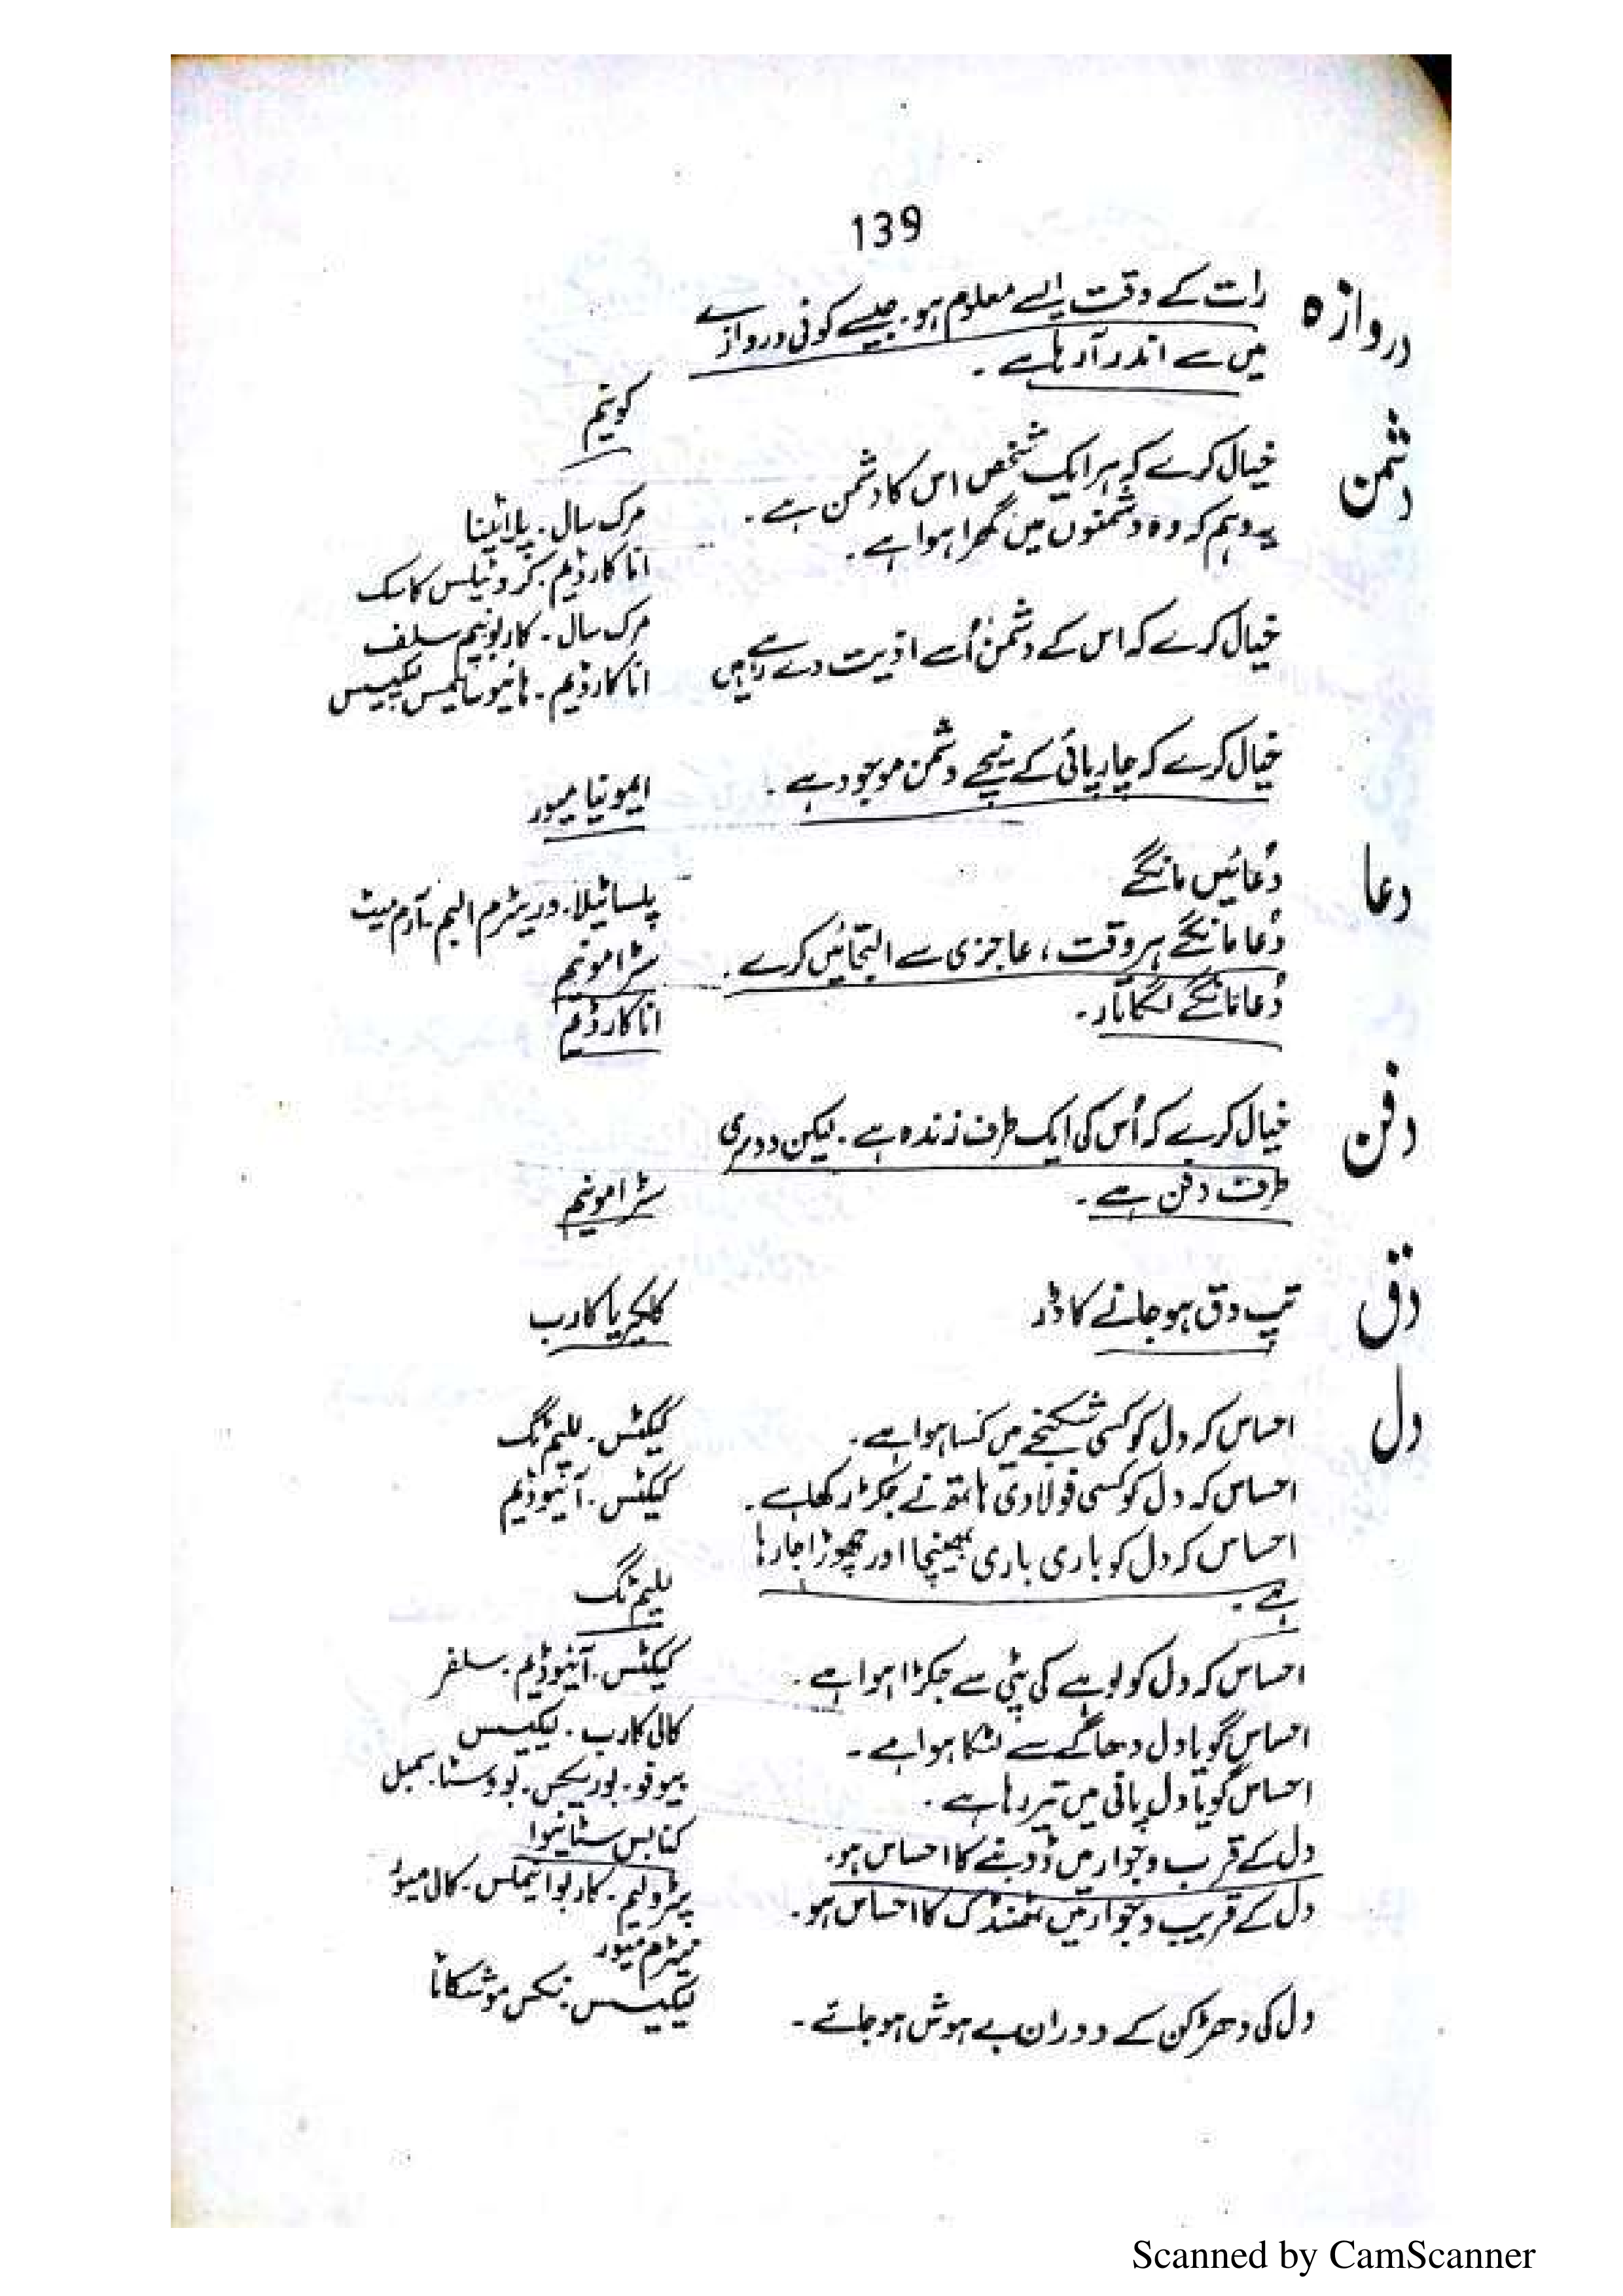 139
دروازہ
رات کے وقت ایسے معلوم ہو۔ جیسے کوئی دروازے
میں سے اندر آ رہا ہے۔
کونیم
دشمن
خیال کرے کہ ہر ایک شخص اس کا دشمن ہے۔
مرک سال۔ پلاٹینا
یہ وہم کہ وہ دشمنوں میں گھرا ہوا ہے۔
اناکارڈیم۔ کروٹیلس کاسک
خیال کرے کہ اس کے دشمن اُسے اذیت دے رہے ہیں
مرک سال۔ کاربونیم سلف
اناکارڈیم۔ ہائیوسائمس لیکیسس
خیال کرے کہ چارپائی کے نیچے دشمن موجود ہے۔
ایمونیا میور
دعا
دُعائیں مانگے
پلساٹیلا۔ وریٹرم البم۔ آرم میٹ
دُعا مانگے ہر وقت، عاجزی سے التجائیں کرے۔
سٹرامونیم
دُعا مانگے لگاتار۔
اناکارڈیم
دفن
خیال کرے کہ اُس کی ایک طرف زندہ ہے۔ لیکن دوسری
طرف دفن ہے۔
سٹرامونیم
دق
تپ دق ہو جانے کا ڈر
کلکیریا کارب
دل
احساس کہ دل کو کسی شکنجے میں کسا ہوا ہے۔
کیکٹس۔ للیم ٹگ
احساس کہ دل کو کسی فولادی ہاتھ نے جکڑ رکھا ہے۔
کیکٹس۔ آئیوڈیم
احساس کہ دل کو باری باری بھینچا اور چھوڑا جا رہا
ہے۔
للیم ٹگ
احساس کہ دل کو لوہے کی پٹی سے جکڑا ہوا ہے۔
کیکٹس۔ آئیوڈیم۔ سلفر
احساس گویا دل دھاگے سے لٹکا ہوا ہے۔
کالی کارب۔ لیکیسس
احساس گویا دل پانی میں تیر رہا ہے۔
بیوفو۔ بوریکس۔ بووسٹا۔ سمبل
دل کے قرب و جوار میں ڈوبنے کا احساس ہو۔
کنابس سٹائیوا
دل کے قریب و جوار میں ٹھنڈک کا احساس ہو۔
پٹرولیم۔ کاربو انیملس۔ کالی میور
نیٹرم میور
دل کی دھڑکن کے دوران بے ہوش ہو جائے۔
لیکیسس۔ نکس موشکاٹا
Scanned by CamScanner